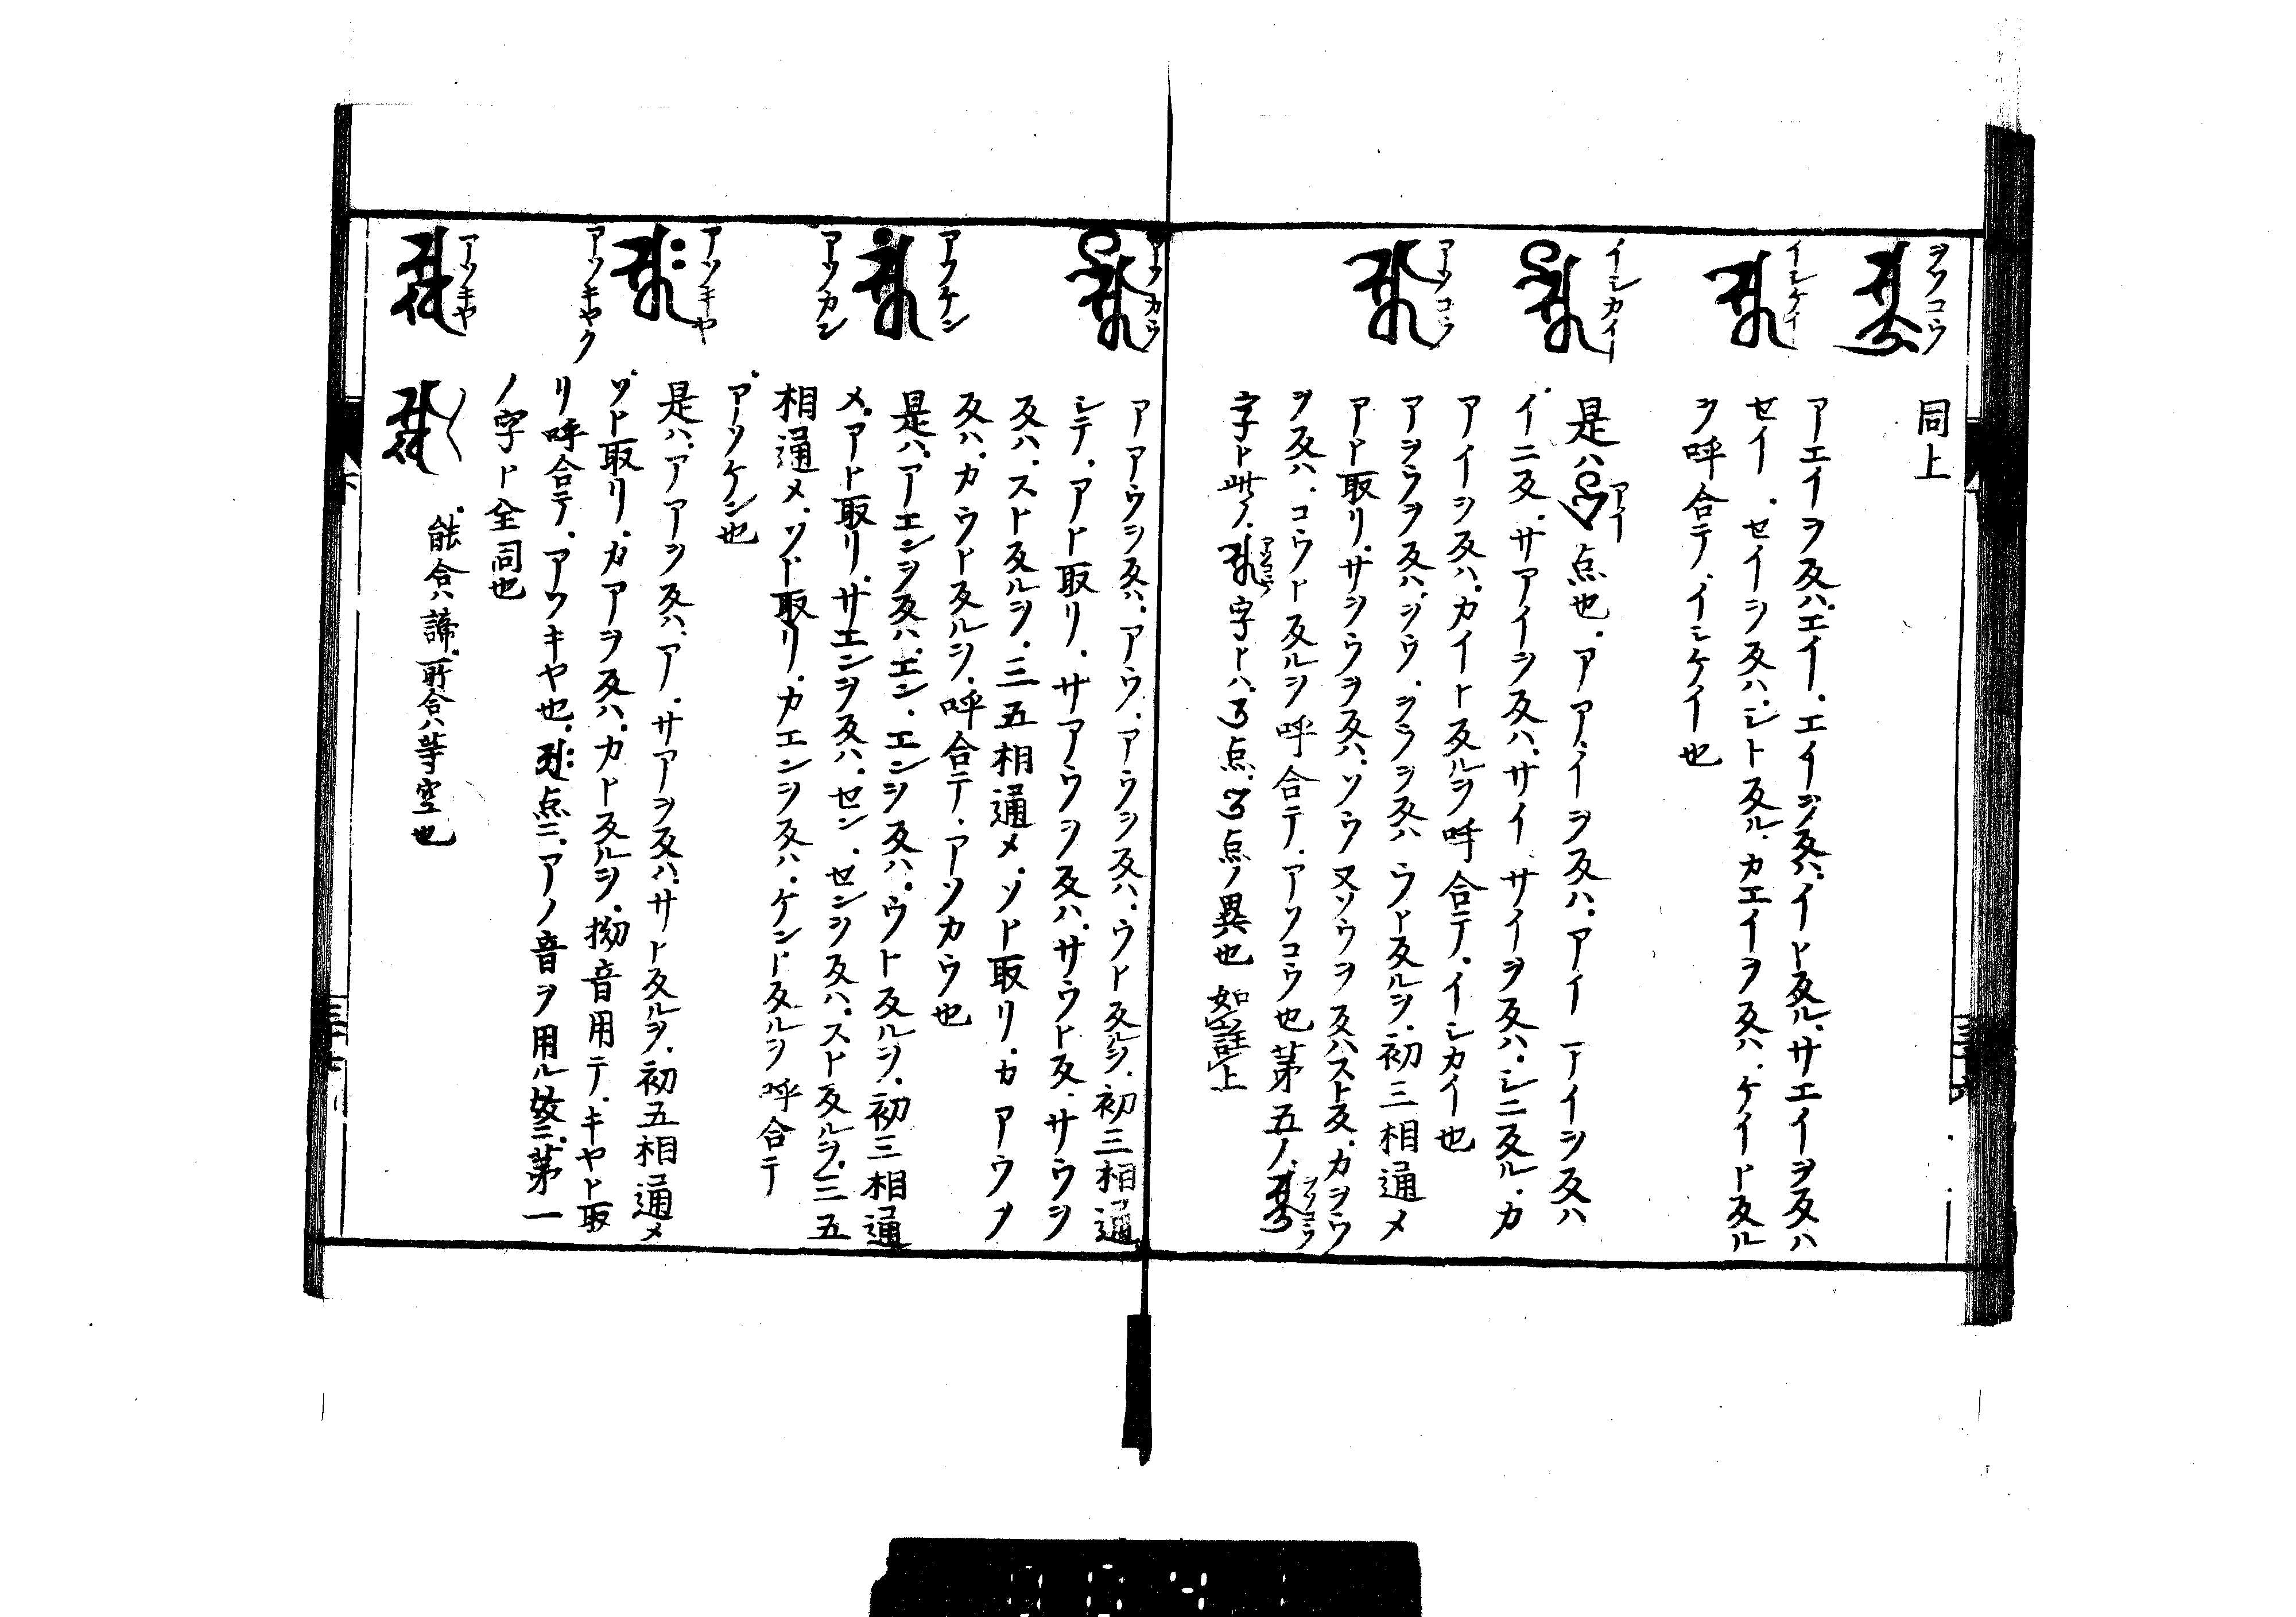 ヲツコウ
同上
イシケイ
アエイヲ反ハ、エイ、エイヲ反ハ、イト反ル、サエイヲ反ハ
セイ、セイヲ反ハ、シト反ル、カエイヲ反ハ、ケイト反ル
ヲ呼合テ、イシケイ也
イシカイ
是ハ 点也、アアイヲ反ハ、アイ アイヲ反ハ
アイ
イニ反、サアイヲ反ハ、サイ サイヲ反ハ、シニ反ル、カ
アイヲ反ハ、カイト反ルヲ呼合テ、イシカイ也
アツコウ
アヲウヲ反ハ、ヲウ、ヲウヲ反ハ ウト反ルヲ、初三相通メ
アト取リ、サヲウヲ反ハ、ソウ 又ソウヲ反ハスト反、カヲウ
ヲ反ハ、コウト反ルヲ呼合テ、アツコウ也 第五ノ
ヲツコウ
字ト此ノ 字トハ、 点、 点ノ異也 如註上
アツコウ
アツカウ
アアウヲ反ハ、アウ、アウヲ反ハ、ウト反ルヲ、初三相通
シテ、アト取リ、サアウヲ反ハ、サウト反、サウヲ
反ハ、スト反ルヲ、三五相通メ、ソト取リ、カアウヲ
反ハ、カウト反ルヲ、呼合テ、アソカウ也
アツケン
アツカン
是ハ、アエンヲ反ハ、エン、エンヲ反ハ、ウト反ルヲ、初三相通
メ、アト取リ、サエンヲ反ハ、セン、センヲ反ハ、スト反ルヲ、三五
相通メ、ソト取リ、カエンヲ反ハ、ケント反ルヲ呼合テ
アツケン也
アツキヤ
アツキヤク
是ハ、アアヲ反ハ、ア、サアヲ反ハ、サト反ルヲ、初五相通メ
ソト取リ、カアヲ反ハ、カト反ルヲ、拗音用テ、キヤト取
リ呼合テ、アツキヤ也、 点ニ、アノ音ヲ用ル故ニ、第一
ノ字ト全同也
アツキヤ
能合ハ諦、所合ハ等空也
下
三十七